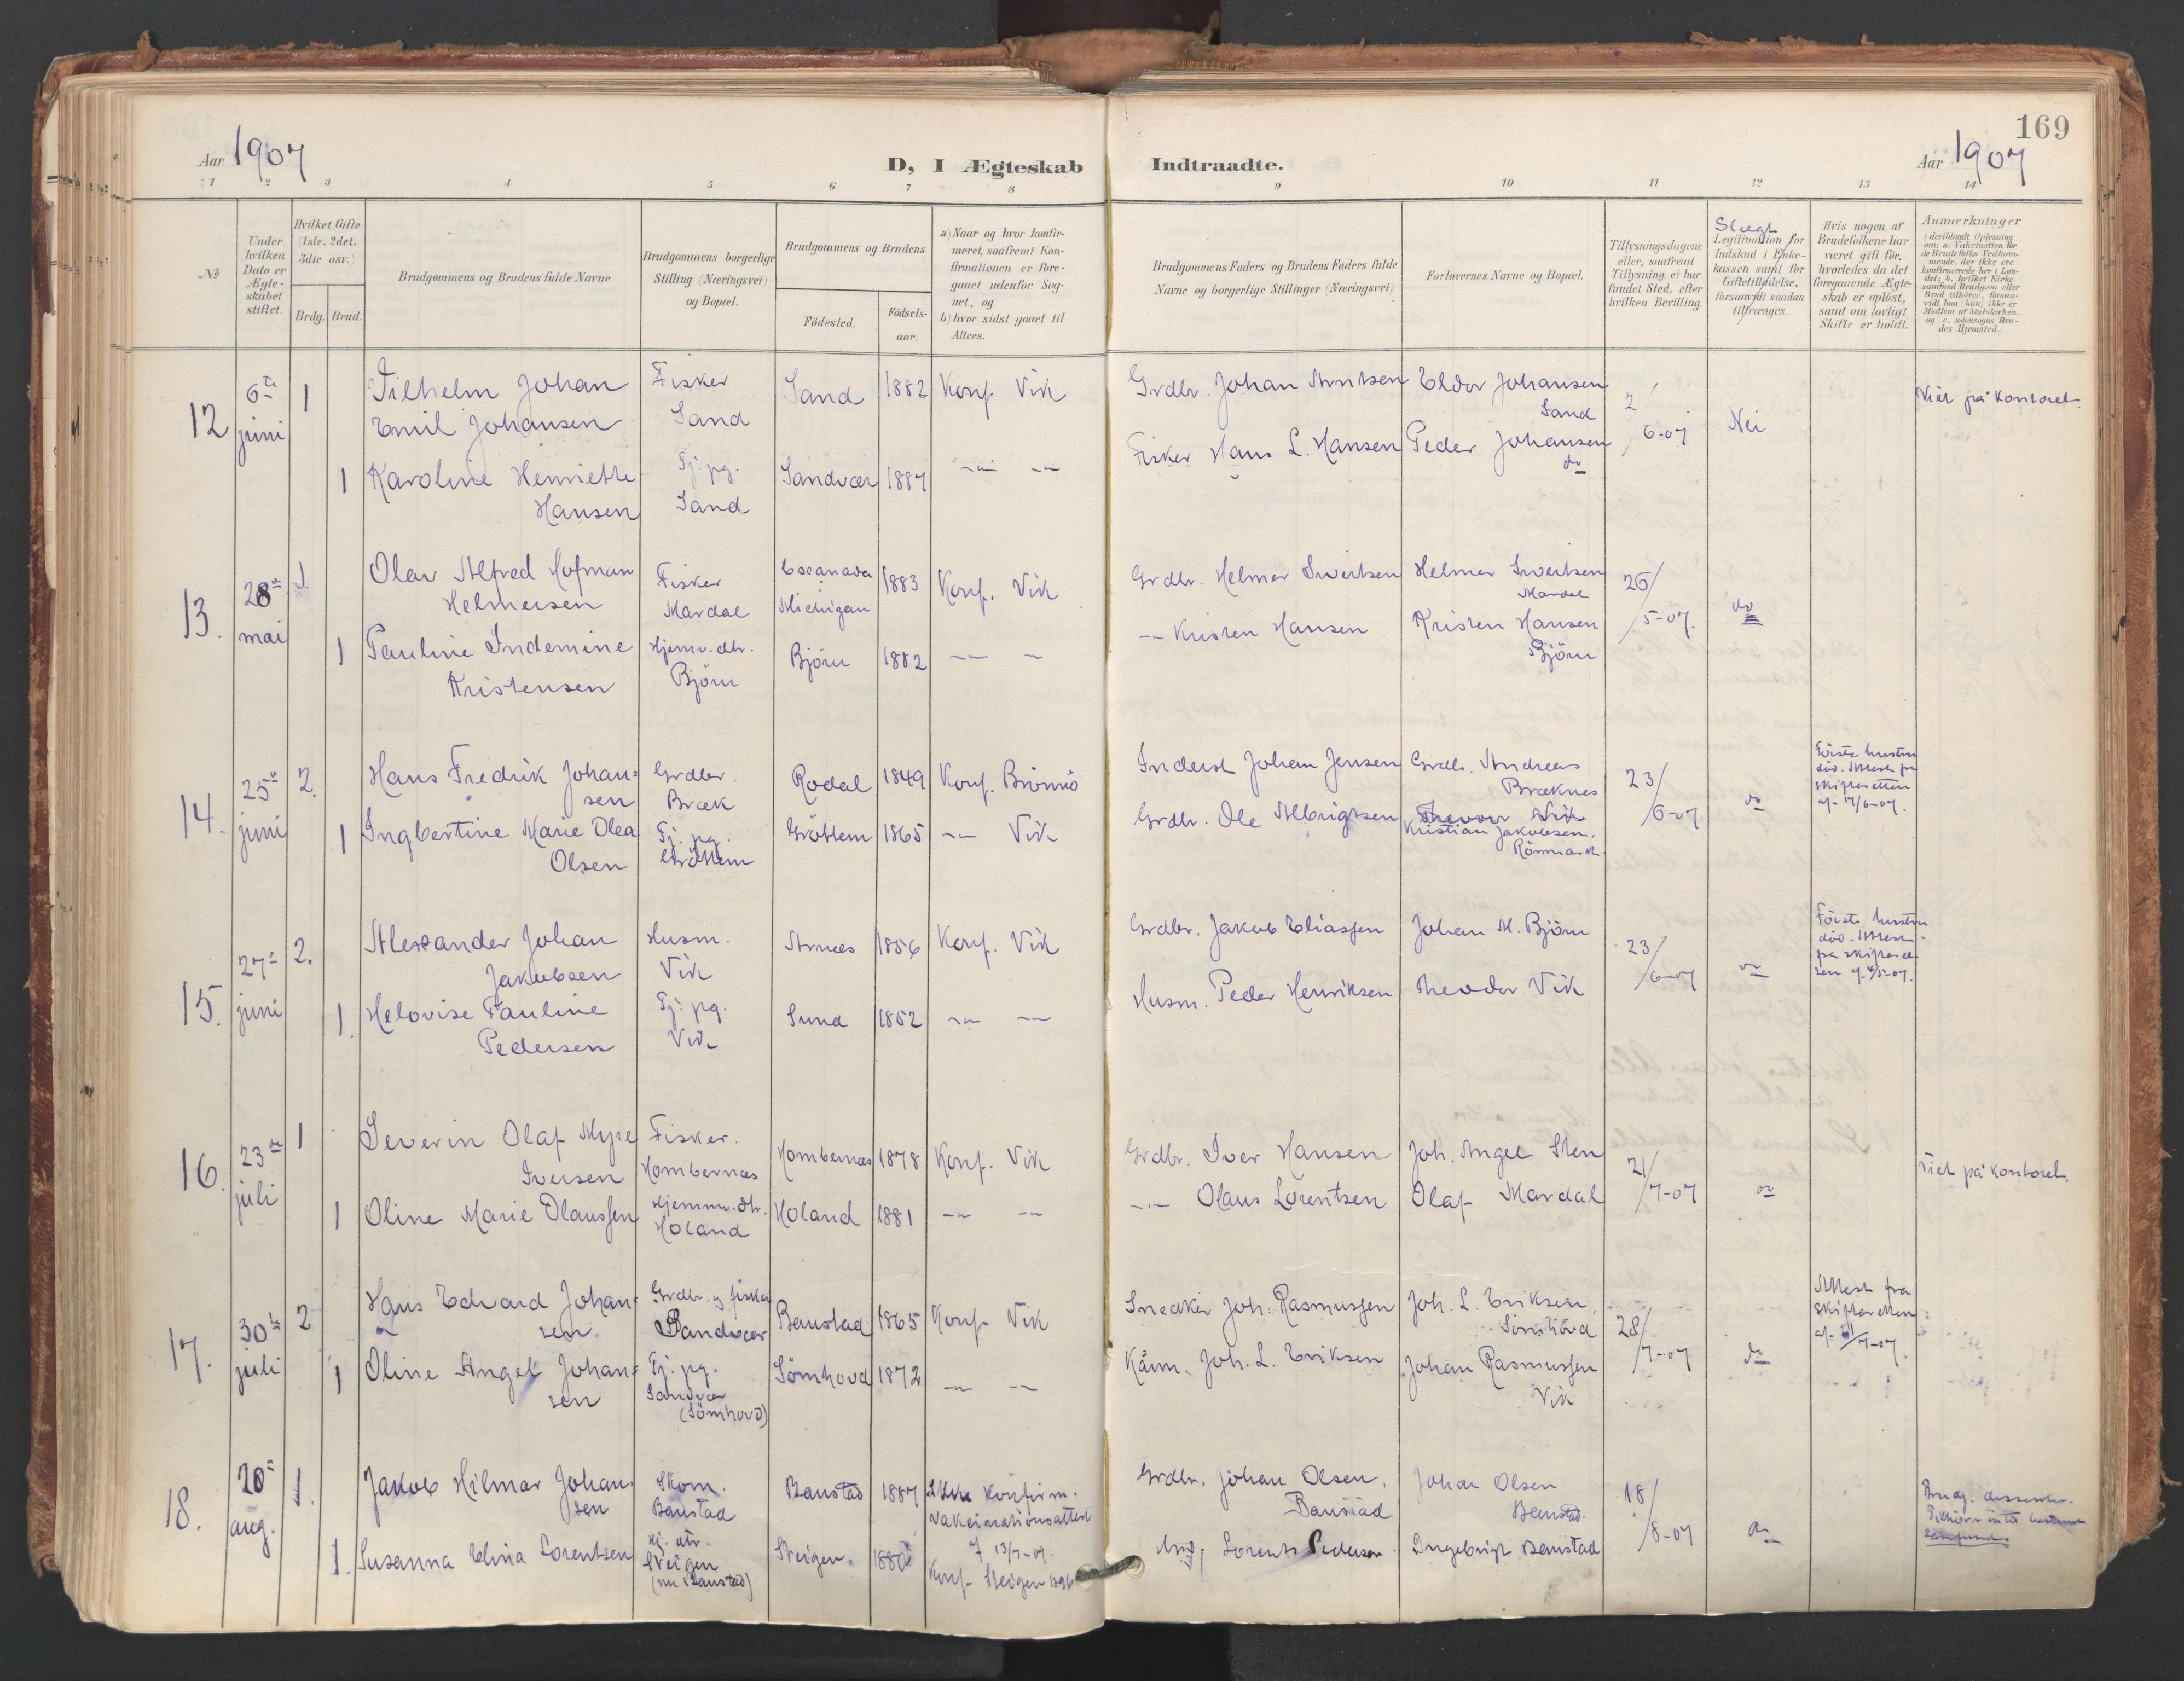 169
Aar 1907
D, I Ægteskab Indtraadte.
Aar 1907
1 2 3 4 5 6 7 8 9 10 11 12 13 14
No
Under hvilken Dato er Ægteskabet stiftet.
Hvilket Gifte (1ste, 2det, 3die osv.)
Brdg. Brud.
Brudgommens og Brudens fulde Navne
Brudgommens borgerlige Stilling (Næringsvei) og Bopæl.
Brudgommens og Brudens
Fødested.
Fødselsaar.
a) Naar og hvor konfirmeret, saafremt Konfirmationen er foregaaet udenfor Sognet, og
b) hvor sidst gaaet til Alters.
Brudgommens Faders og Brudens Faders fulde Navne og borgerlige Stillinger (Næringsvei)
Forlovernes Navne og Bopæl.
Tillysningsdagene eller, saafremt Tillysning ei har fundet Sted, efter hvilken Bevilling.
Slægt
Legitimation for Indskud i Enkekassen samt for Giftetilladelse, forsaavidt saadan tiltrænges.
Hvis nogen af Brudefolkene har været gift før, hvorledes da det foregaaende Ægteskab er opløst, samt om lovligt Skifte er holdt.
Anmærkninger
(deriblandt Oplysning om: a. Vakcination for de Brudefolks Vedkommende, der ikke ere konfirmerede her i Landet; b. hvilket Kirkesamfund Brudgom eller Brud tilhører, forsaavidt han (hun) ikke er Medlem af Statskirken, og c. udensogns Brudes Hjemsted.)
12
6te juni
1
Vilhelm Johan
Emil Johansen
Fisker
Sand
Sand
1882
Konf. Vik
Grdbr. Johan Arntsen
Eldor Johansen
Sand
2/6-07
Nei
Viet på kontoret.
1
Karoline Henriette
Hansen
Tj. pg.
Sand
Sandvær
1887
-"- -"-
Fisker Hans L. Hansen
Peder Johansen
do
13.
28de mai
1
Olav Alfred Hofman
Helmersen
Fisker
Mardal
Escanada
Michigan
1883
Konf. Vik
Grdbr. Helmer Sivertsen
Helmer Sivertsen
Mardal
26/5-07.
do
1
Pauline Indemine
Kristensen
Hjemv. dtr.
Bjørn
Bjørn
1882
-"- -
-"- Kristen Hansen
Kristen Hansen
Bjørn
14.
25de juni
2.
Hans Fredrik Johan=
sen
Grdbr.
Bræk
Rodal
1849
Konf. Brønnø
Inderst Johan Jensen
Grdb. Andreas
Bræknes
23/6-07
do
Første hustru
død. Attest fra
skifteretten
af 17/6-07.
1
Ingbertine Marie Olea
Olsen
Tj. pg.
Grøttem
Grøttem
1865
-"- Vik
Grdbr. Ole Albrigtsen
Theodor Vik
Kristian Jakobsen.
Rørmark.
15.
27de juni
2.
Alexander Johan
Jakobsen
Husm.
Vik
Arnæs
1856
Konf. Vik
Grdbr. Jakob Eliassen
Johan M. Bjørn
23/6-07
do
Første hustru
død. Attest
fra skifteret-
ten
1.
Helovise Pauline
Pedersen
Tj. pg.
Vik
Sund
1852
-"- -"-
Husm. Peder Henriksen
Theodor Vik
16.
23de juli
1
Severin Olaf Myre
Iversen
Fisker.
Hombernæs
Hombernæs
1878
Konf. Vik
Grdbr. Iver Hansen
Joh. Angel Sten
21/7-07
do
Viet på kontoret.
1
Oline Marie Olaussen
Hjemmv. dtr.
Holand
Holand
1881
-"- -"-
-"- Olaus Lorentsen
Olaf Mardal
17.
30te juli
2
Hans Edvard Johan=
sen
Grdbr. og fisker
Sandvær
Baustad
1865
Konf Vik
Snedker Joh. Rasmussen
Joh. L. Eriksen,
Sømhovd
28/7-07
do
Attest fra
skifteretten
1
Oline Angel Johan=
sen
Tj. pg.
Sandvær
(Sømhovd)
Sømhovd
1872
-"- -"-
Kårm. Joh. L. Eriksen
Johan Rasmussen
Vik
18.
20de aug.
1.
Jakob Hilmar Johan=
sen
Skom.
Baustad
Baustad
1887
Ikke konfirm.
Vakcinationsattest
af 13/7-07.
Grdbr. Johan Olsen,
Baustad
Johan Olsen
Baustad.
18/8-07
do
Brudg. dissenter.
Tilhører intet bestemt
samfund.
1.
Susanna Elina Lorentsen
Hj. dtr.
Steigen
(nu Baustad)
Steigen.
Konf. Steigen 1896
Lorents Pedersen.
Ingebrigt Baustad